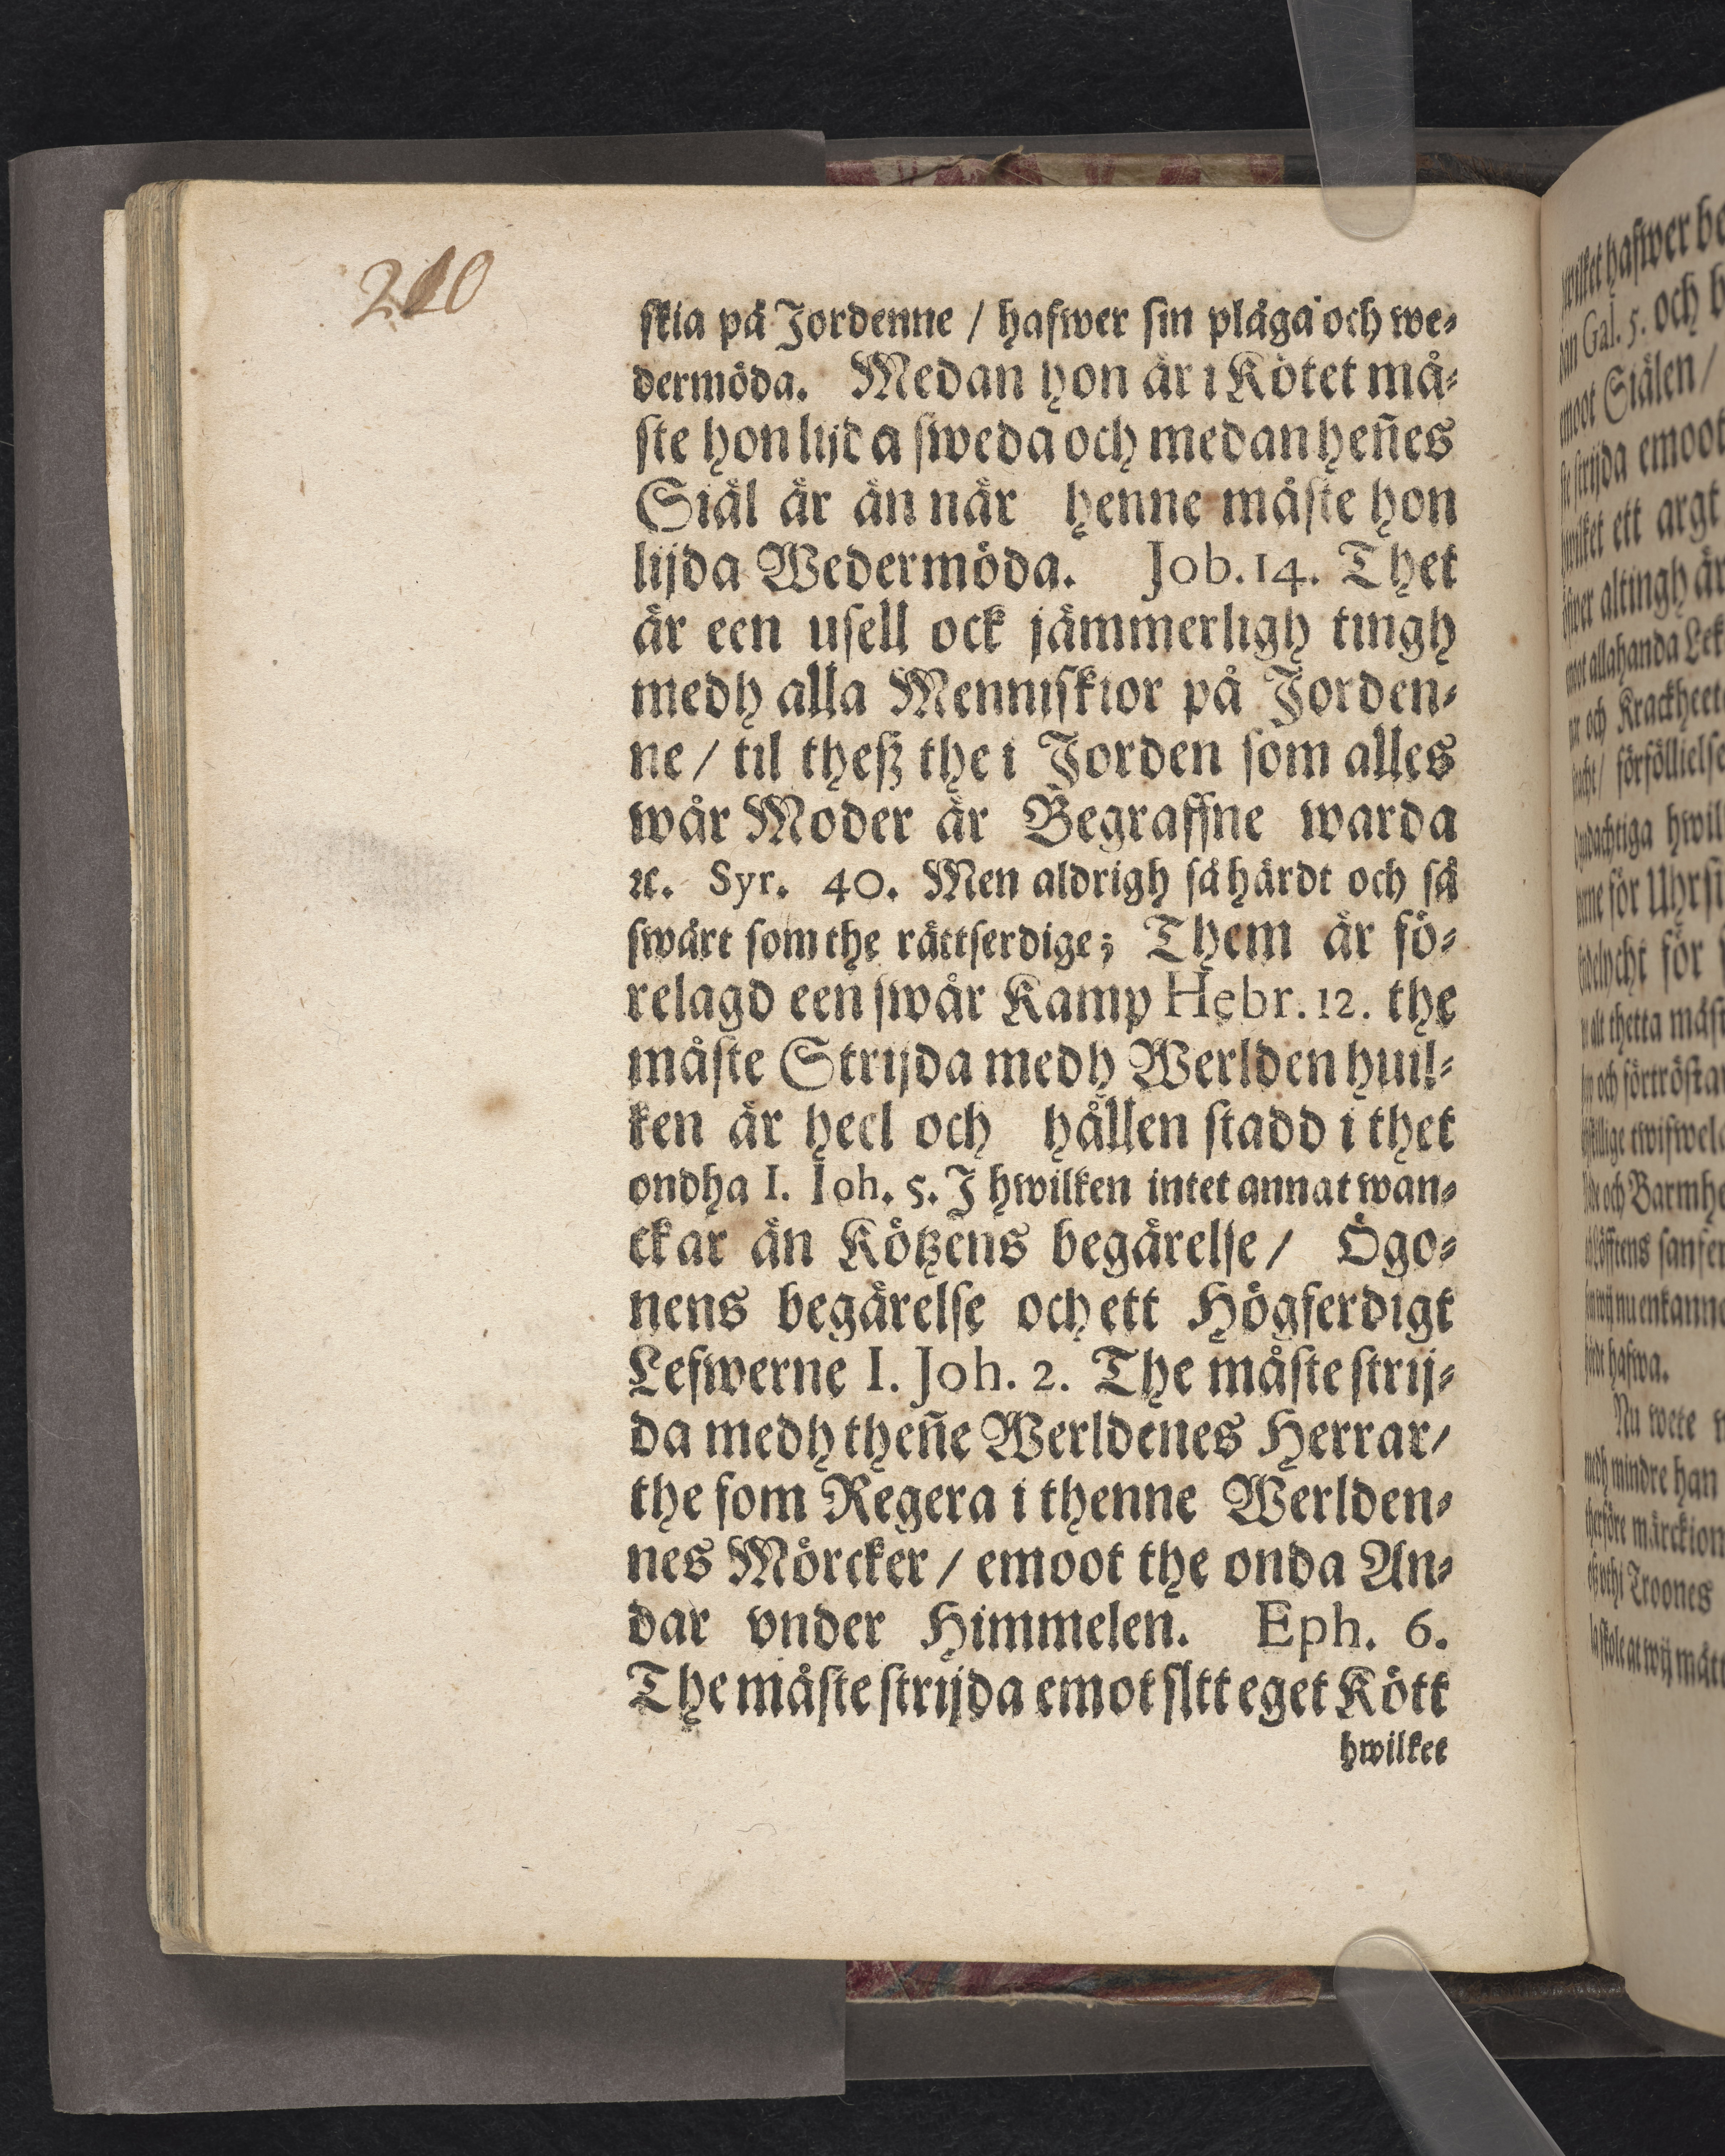 210
skia på Jordenne / hafwer sin plåga och we-
dermöda. Medan hon är i Kötet må-
ste hon lijda sweda och medan heñes
Siäl är än när henne måste hon
lijda Wedermöda. Job. 14. Thet
är een usell ock jämmerligh tingh
medh alla Menniskior på Jorden-
ne / til thesz the i Jorden som alles
wår Moder är Begraffne warda
ꝛc. Syr. 40. Men aldrigh så hårdt och så
swårt som the rättferdige; Them är fö-
relagd een swår Kamp Hebr. 12. the
måste Strijda medh Werlden huil-
ken är heel och hållen stadd i thet
ondha I. Ioh. 5. J hwilken intet annat wan-
ckar än Kötzens begärelse / Ögo-
nens begärelse och ett Högferdigt
Lefwerne I. Joh. 2. The måste strij-
da medh theñe Werldenes Herrar/
the som Regera i thenne Werlden-
nes Mörcker / emoot the onda An-
dar vnder Himmelen. Eph. 6.
The måste strijda emot sltt eget Kött
hwilket
hwilket hafwer be
dan Gal. 5. och
emoot Siälen /
strijda emoot
hwilket ett argt
öfwer altingh är
moot allahanda
och
förföllielse
hwil
för
för
alt thetta måst
och förtröstan
och Barmhe
hafwa.
Nu wete
medh mindre han
therföre
Troones
at wij mått